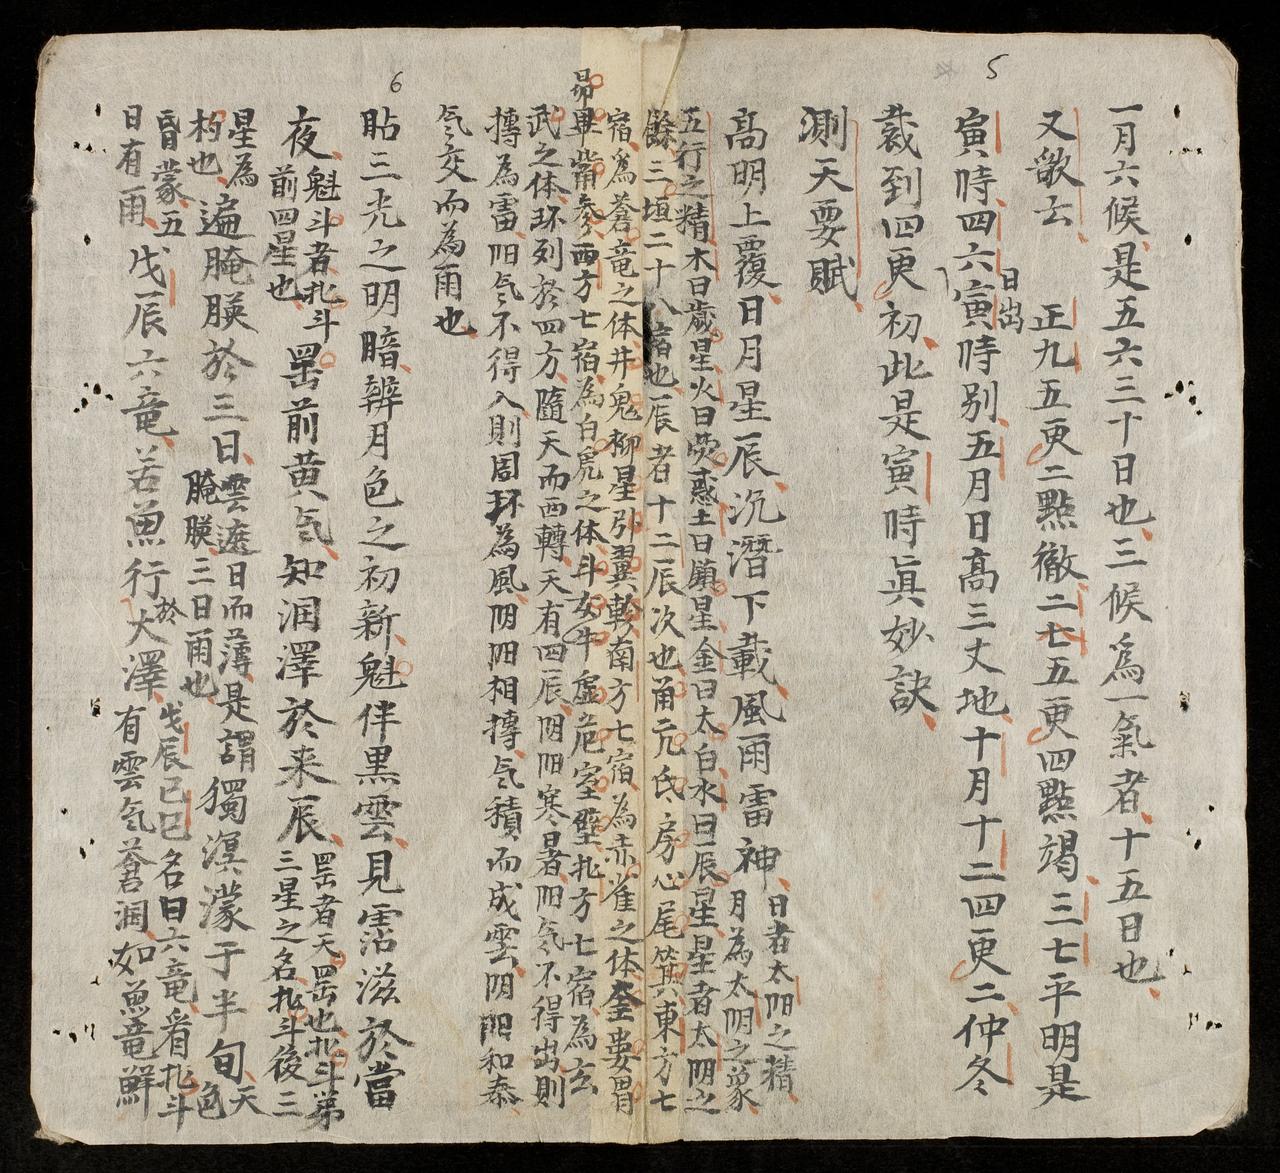 5
一月六候是五六三十日也三候爲一氣者十五日也
又歌云 正九五更二點徹二七五更四點竭三七平明是
日出
寅時四六寅時别五月日高三丈地十月十二四更二仲冬
裁到四更初此是寅時眞妙訣
測天要賦
高明上覆日月星辰沉潛下載風雨雷神日者太阳之精
月為太阴之象
五行之精木曰歲星火曰熒惑土曰鎮星金曰太白水曰辰星星者太阴之
餘三垣二十八宿也辰者十二辰次也角亢氐房心尾箕東方七
宿爲蒼竜之体井鬼柳星引翼軫南方七宿為赤雀之体奎婁胃
昴畢觜參西方七宿為白虎之体斗女牛虚危室壁北方七宿為玄
武之体环列於四方隨天而西轉天有四辰阴阳寒暑阳気不得出則
摶為雷阳気不得入則周环為風阴阳相摶気積而成雲阴阳和泰
気交而為雨也
6
占三光之明暗辨月色之初新魁伴黑雲見霑滋於當
夜魁斗者北斗
前四星也
罡前黄気知润澤於来辰罡者天罡也北斗第
三星之名北斗後三
星為
杓也
遍腌䐺於三日雲遮日而薄是謂
腌䐺三日雨也
獨溟濛于半旬天色
昏蒙五
日有雨
戊辰六竜若魚行於大澤戊辰己巳名曰六竜看北斗
有雲気蒼润如魚竜鮮